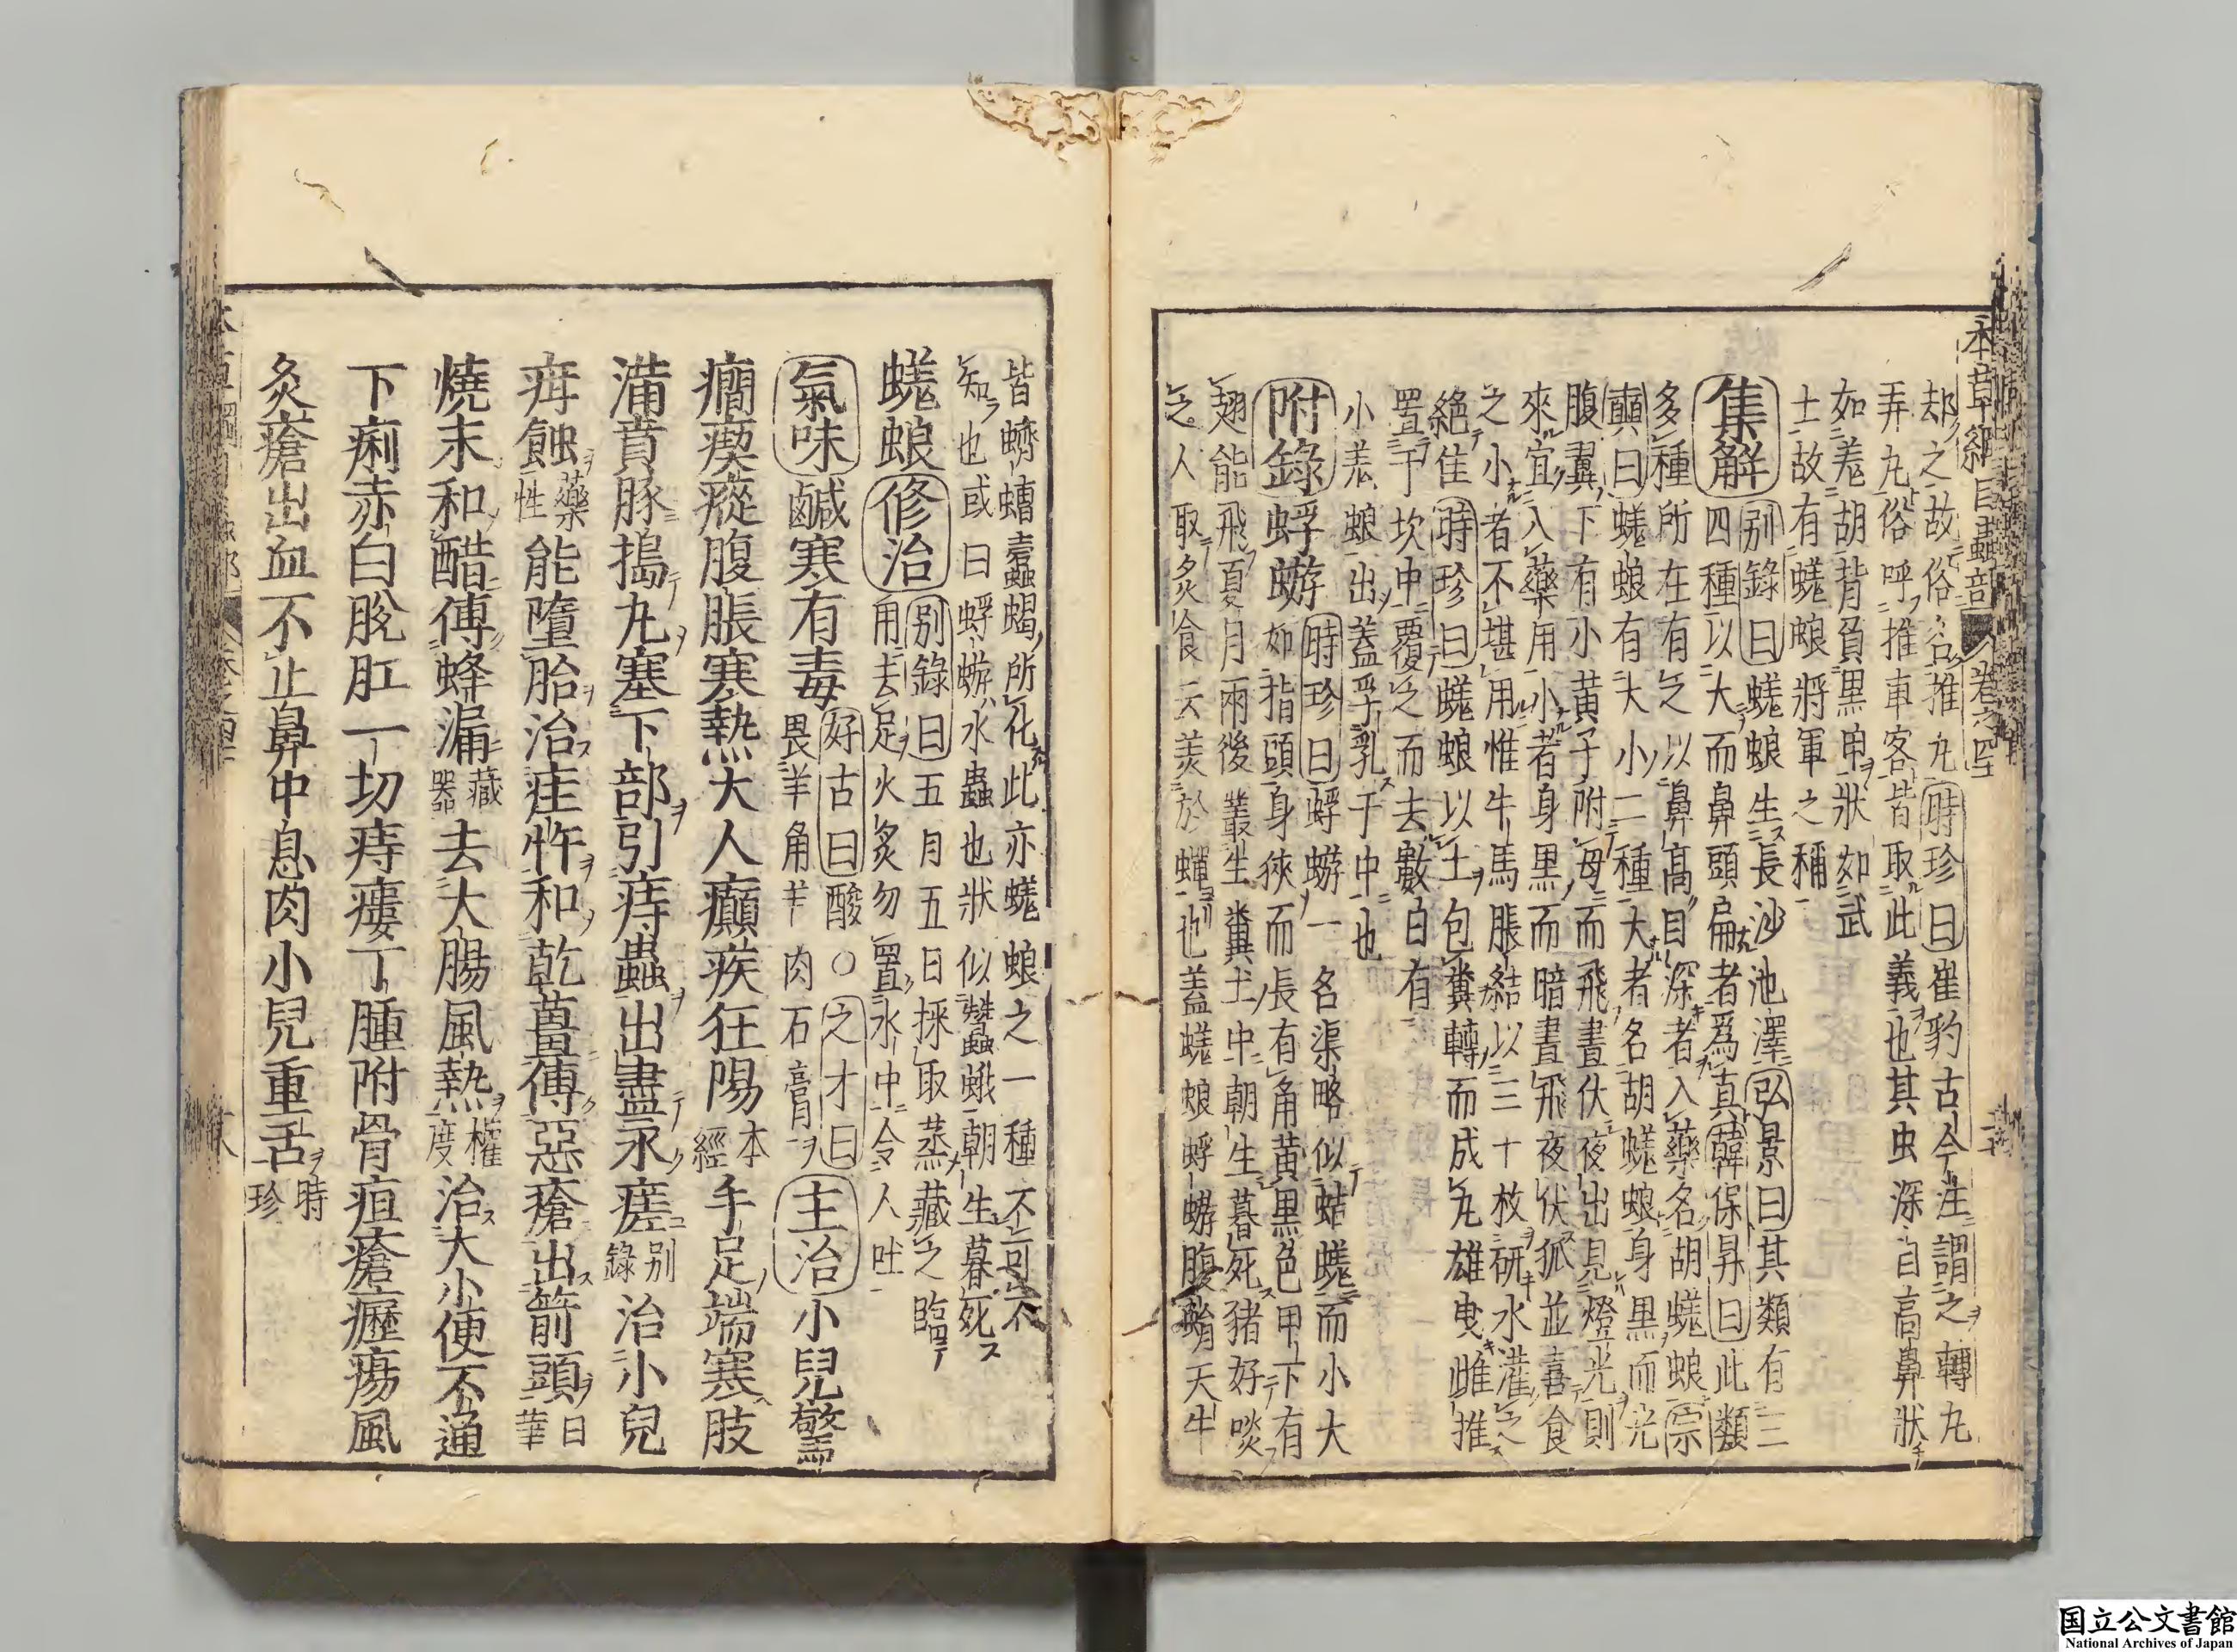 本草綱目蟲部 卷之四十一
却之故俗名推丸時珍曰崔豹古今注謂之轉丸
弄丸俗呼推車客皆取此義也其虫深目高鼻狀
如羗胡背負黒甲狀如武
士故有蜣蜋將軍之稱
集解別錄曰蜣蜋生長沙池澤弘景曰其類有三
四種以大而鼻頭扁者爲真韓保昇曰此類
多種所在有之以鼻高目深者入藥名胡蜣蜋宗
奭曰蜣蜋有大小二種大者名胡蜣蜋身黒而光
腹翼下有小黄子附母而飛晝伏夜出見燈光則
來宜入藥用小者身黒而暗晝飛夜伏狐並喜食
之小者不堪用惟牛馬脹結以三十枚研水灌之
絶佳時珍曰蜣蜋以土包糞轉而成丸雄曳雌推
置于坎中覆之而去數日有
小羗蜋出蓋孚乳于中也
附錄蜉蝣時珍曰蜉蝣一名渠略似蛣蜣而小大
如指頭身狹而長有角黄黒色甲下有
翅能飛夏月雨後叢生糞土中朝生暮死猪好啖
之人取炙食云美於蟬也蓋蜣蜋蜉蝣腹蛸天牛
皆蠐螬蠧蝎所化此亦蜣蜋之一種不可不
知也或曰蜉蝣水蟲也狀似蠶蛾朝生暮死
蜣蜋修治別錄曰五月五日採取蒸藏之臨
用去足火炙勿置水中令人吐
氣味鹹寒有毒好古曰酸〇之才曰
畏羊角羊肉石膏
主治小兒驚
癇瘈瘲腹脹寒熱大人癲疾狂陽本經手足端寒肢
滿賁豚搗丸塞下部引痔蟲出盡永瘥別錄治小兒
疳蝕藥性能墮胎治疰忤和乾薑傅惡瘡出箭頭日華
燒末和醋傅蜂漏藏器去大腸風熱權度治大小便不通
下痢赤白脫肛一切痔瘻丁腫附骨疽瘡癧瘍風
灸瘡出血不止鼻中息肉小兒重舌時珍
国立公文書館
National Archives of Japan